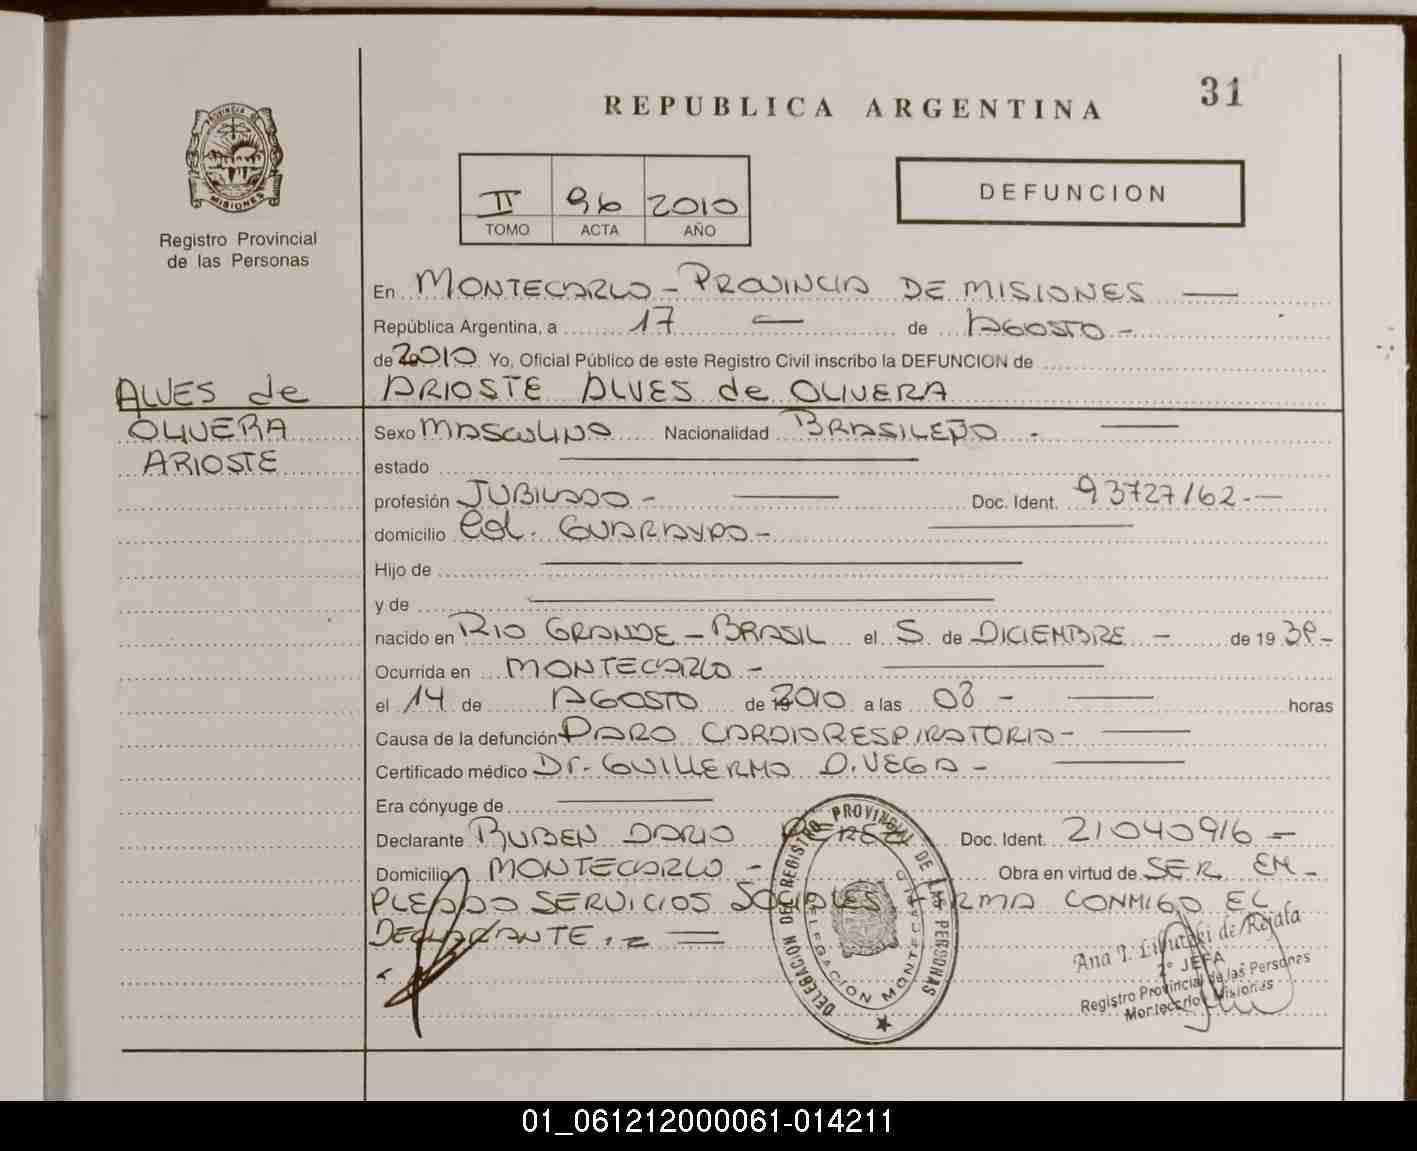 31
REPUBLICA ARGENTINA
PROVINCIA DE
MISIONES
Registro Provincial
de las Personas
II 96 2010
TOMO ACTA AÑO
DEFUNCION
En MONTECARLO - PROVINCIA DE MISIONES —
República Argentina, a 17 — de AGOSTO -
de 2010 Yo, Oficial Público de este Registro Civil inscribo la DEFUNCION de
ARIOSTE ALVES de OLIVERA
ALVES de
OLIVERA
ARIOSTE
Sexo MASCULINO Nacionalidad BRASILEÑO - —
estado —
profesión JUBILADO - — Doc. Ident. 93727162 - —
domicilio Col. GUARAYPO - —
Hijo de —
y de —
nacido en RIO GRANDE - BRASIL el 5 de DICIEMBRE - de 19 39 -
Ocurrida en MONTECARLO - —
el 14 de AGOSTO de 2010 a las 03 - — horas
Causa de la defunción PARO CARDIORESPIRATORIO - —
Certificado médico Dr. GUILLERMO O. VEGA - —
Era cónyuge de —
Declarante RUBEN DARIO Doc. Ident. 21040916 -
Domicilio MONTECARLO - Obra en virtud de SER EM-
PLEADO SERVICIOS SOCIALES FIRMA CONMIGO EL
DECLARANTE. - —
DELEGACION DEL REGISTRO PROVINCIAL DE LAS PERSONAS
DELEGACION MONTECARLO
Ana I. de Rejala
2° JEFA
Registro Provincial de las Personas
Montecarlo Misiones
01_061212000061-014211